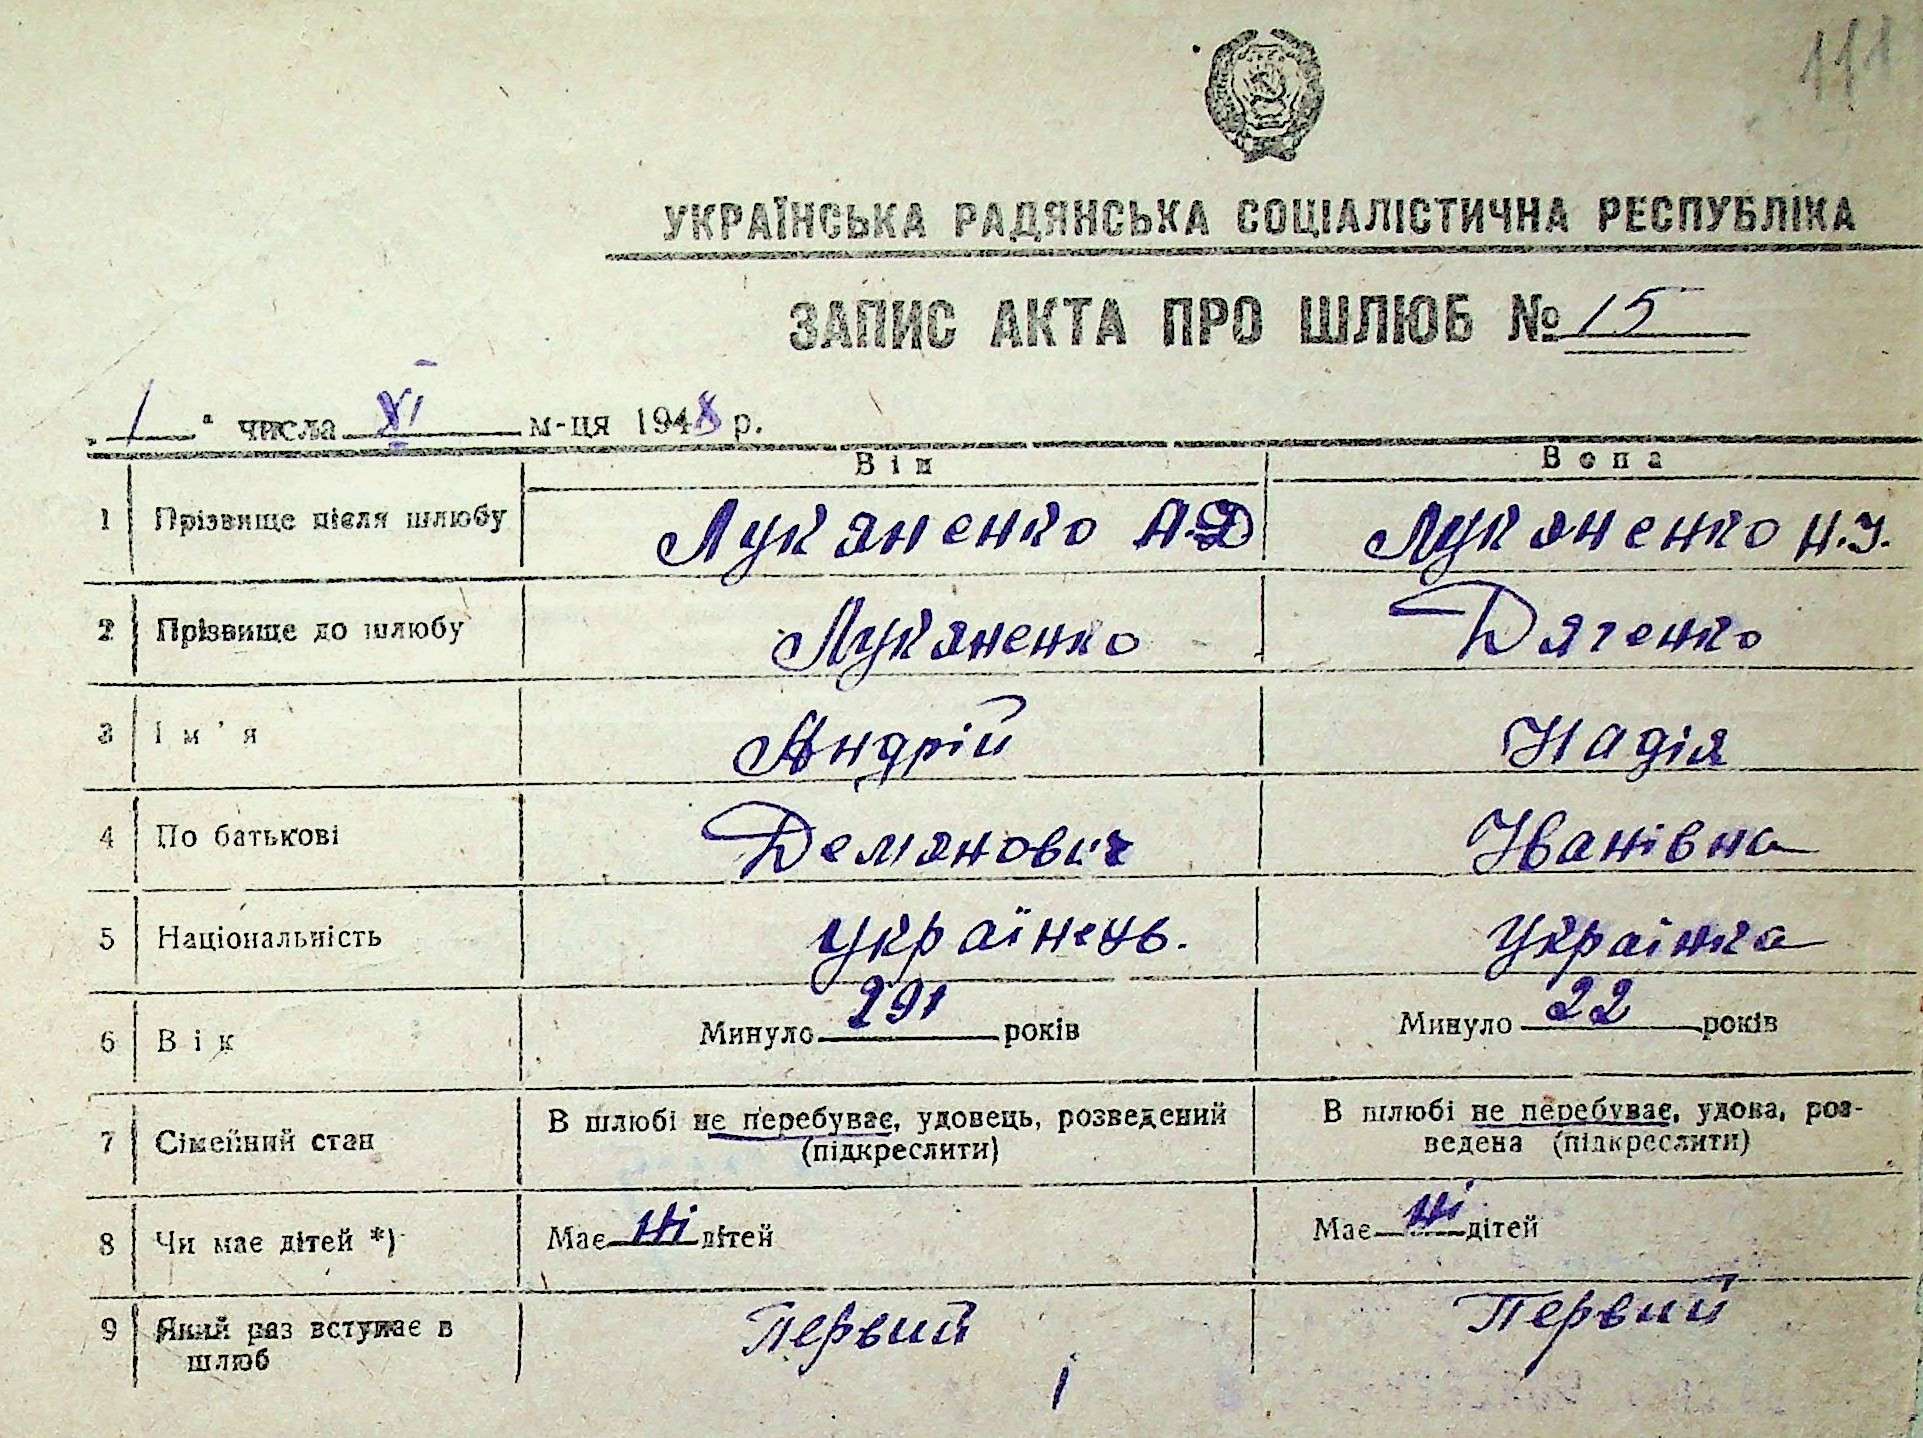 111
УКРАЇНСЬКА РАДЯНСЬКА СОЦІАЛІСТИЧНА РЕСПУБЛІКА
ЗАПИС АКТА ПРО ШЛЮБ № 15
„1“ числа XI м-ця 1948 р.
Він Вона
1 Прізвище після шлюбу Лук'яненко А.Д Лук'яненко Н.І.
2 Прізвище до шлюбу Лук'яненко Дяченко
3 Ім'я Андрій Надія
4 По батькові Демянович Іванівна
5 Національність українець. Українка
6 Вік Минуло 29 років Минуло 22 років
7 Сімейний стан В шлюбі не перебуває, удовець, розведений (підкреслити) В шлюбі не перебуває, удова, роз-
ведена (підкреслити)
8 Чи має дітей *) Має ні дітей Має ні дітей
9 Який раз вступає в шлюб Первий Первий